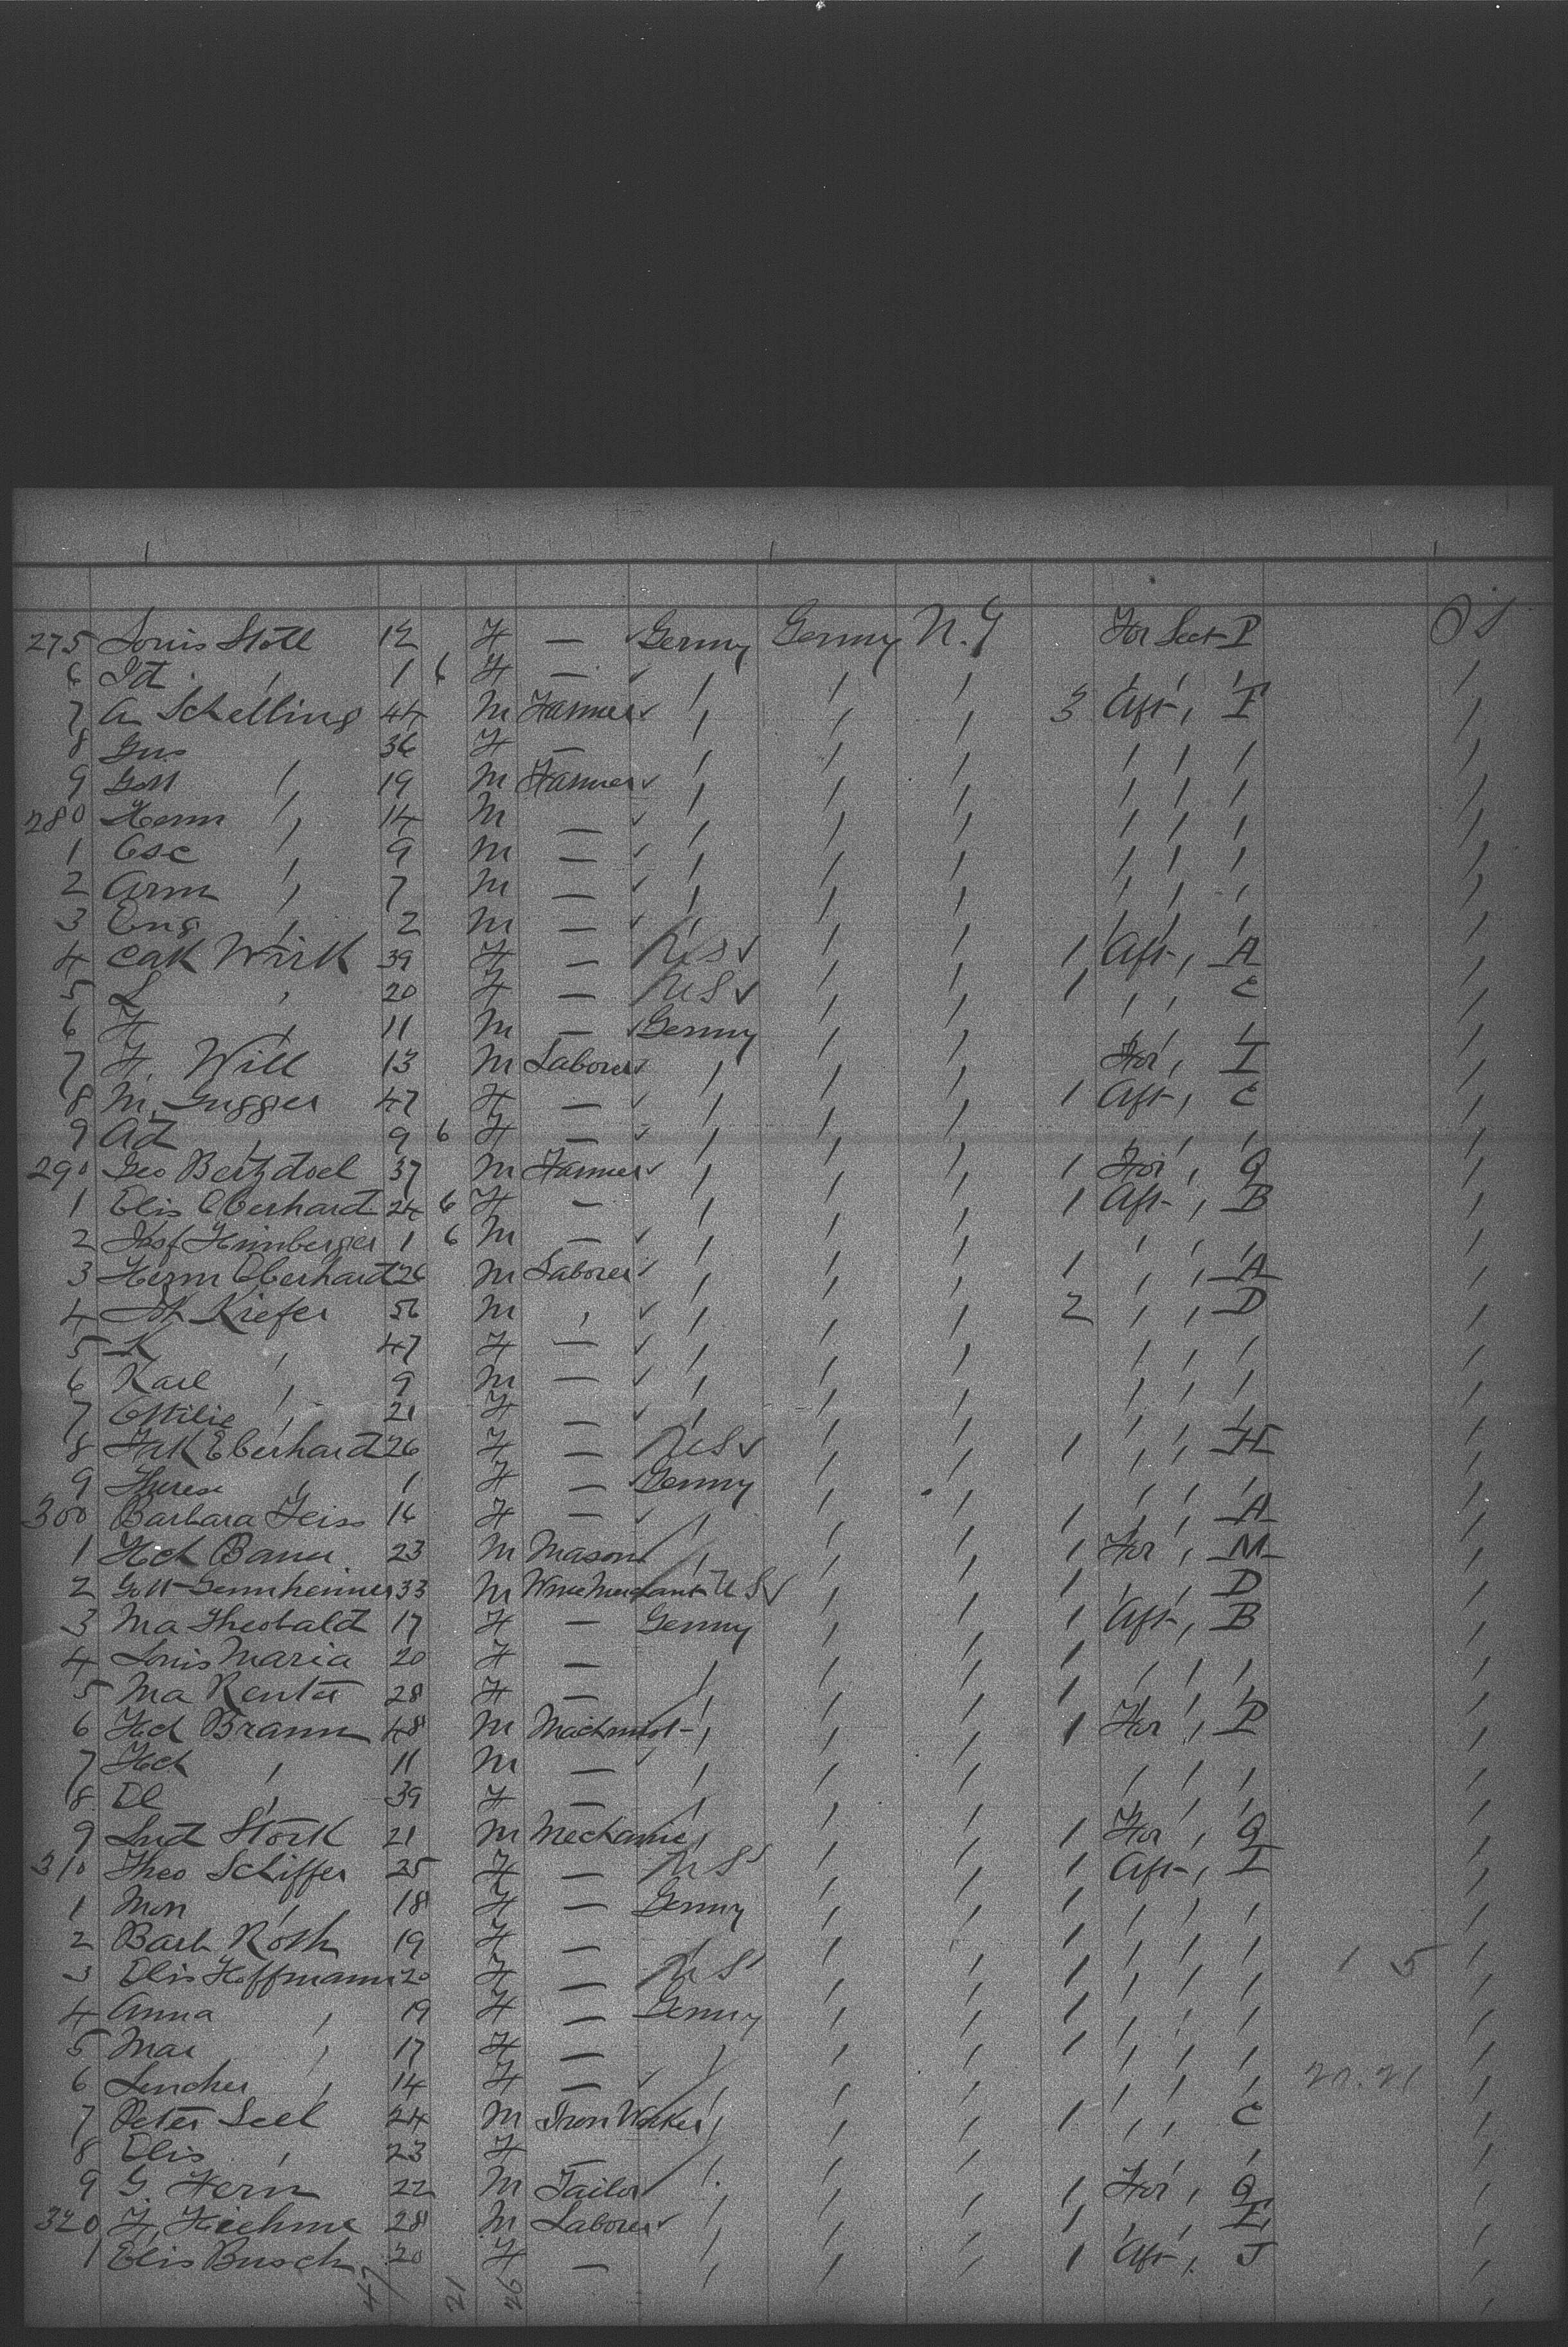 275 Louis Stoll 12 F — Germy Germy N.Y For Sect P
6 Id " 1 6 F — " " " " " "
7 A Schelling 44 M Farmer " " " 3 Aft " F
8 Gus 36 F — " " " " " "
9 Gott " 19 M Farmer " " " " " "
280 Herm " 14 M — " " " " " "
1 Osc " 9 M — " " " " " "
2 Arm " 7 M — " " " " " "
3 Eug " 2 M — " " " " " "
4 Cath 39 F — US " " 1 Aft " A
5 L " 20 F — US " " 1 " " C
6 F " 11 M — Germy " " " " "
7 F. Will 13 M Laborer " " " For " I
8 M. Gugger 47 F — " " " 1 Aft " C
9 Ad " 9 6 F — " " " " " "
290 Geo 37 M Farmer " " " 1 For " Q
1 Elis Eberhard 24 6 F — " " " 1 Aft " B
2 Himberger 1 6 M — " " " " " "
3 Herm Eberhard 26 M Laborer " " " 1 " " A
4 Kiefer 56 M " " " " 2 " " D
5 K " 47 F — " " " " " "
6 Karl " 9 M — " " " " " "
7 Ottilie " 21 F — " " " " " "
8 Eberhard 26 F — US " " 1 " " H
9 Therese " 1 F — Germy " " " " "
300 Barbara Feiss 16 F — " " " 1 " " A
1 23 M Mason " " " 1 For " M
2 Gott 33 M Wine Merchant US " " 1 " " D
3 Ma Theobald 17 F — Germy " " 1 Aft " B
4 Louis Maria 20 F — " " " 1 " " "
5 Ma 28 F — " " " 1 " " "
6 Braun 48 M Machinist " " " 1 For " P
7 " 11 M — " " " " " "
8 El " 39 F — " " " " " "
9 Lud Stork 21 M Mechanic " " " 1 For " Q
310 Theo Schiffer 25 F — US " " 1 Aft " I
1 " 18 F — Germy " " 1 " " "
2 Barb Roth 19 F — " " " 1 " " "
3 Elis Hoffmann 20 F — US " " 1 " " " 1 5
4 Anna " 19 F — Germy " " 1 " " "
5 Mar " 17 F — " " " 1 " " "
6 Lenchen " 14 F — " " " " " " 20.21
7 Peter Seel 24 M Iron Worker " " " 1 " " C
8 Elis " 23 F — " " " " " "
9 G. Hern 22 M Tailor " " " 1 For " Q
320 F. 28 M Laborer " " " 1 " " E
1 Elis Busch 20 F — " " " 1 Aft " J
47 21 26